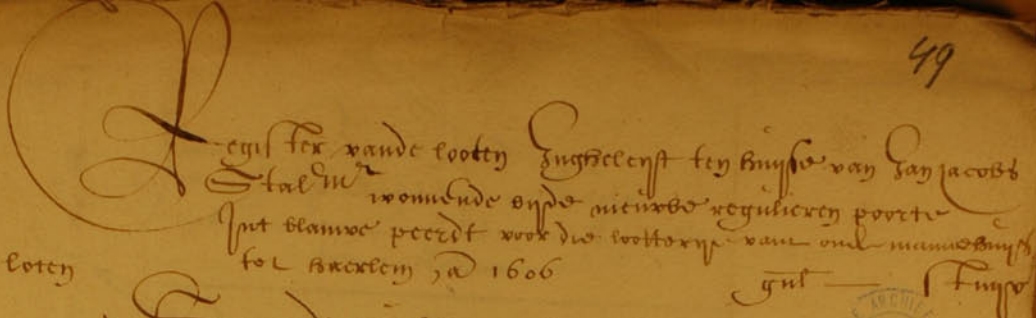 49
Register vande looten Ingheleijt ten huijse van Jan Jacobs
Stal mr wonnende bijde nieuwe regulieren poorte
Int blauwe peerdt voor die lotterije vant oude mannehuijs
loten
ter haerlem A 1606 gul — stuijv
ARCHIE